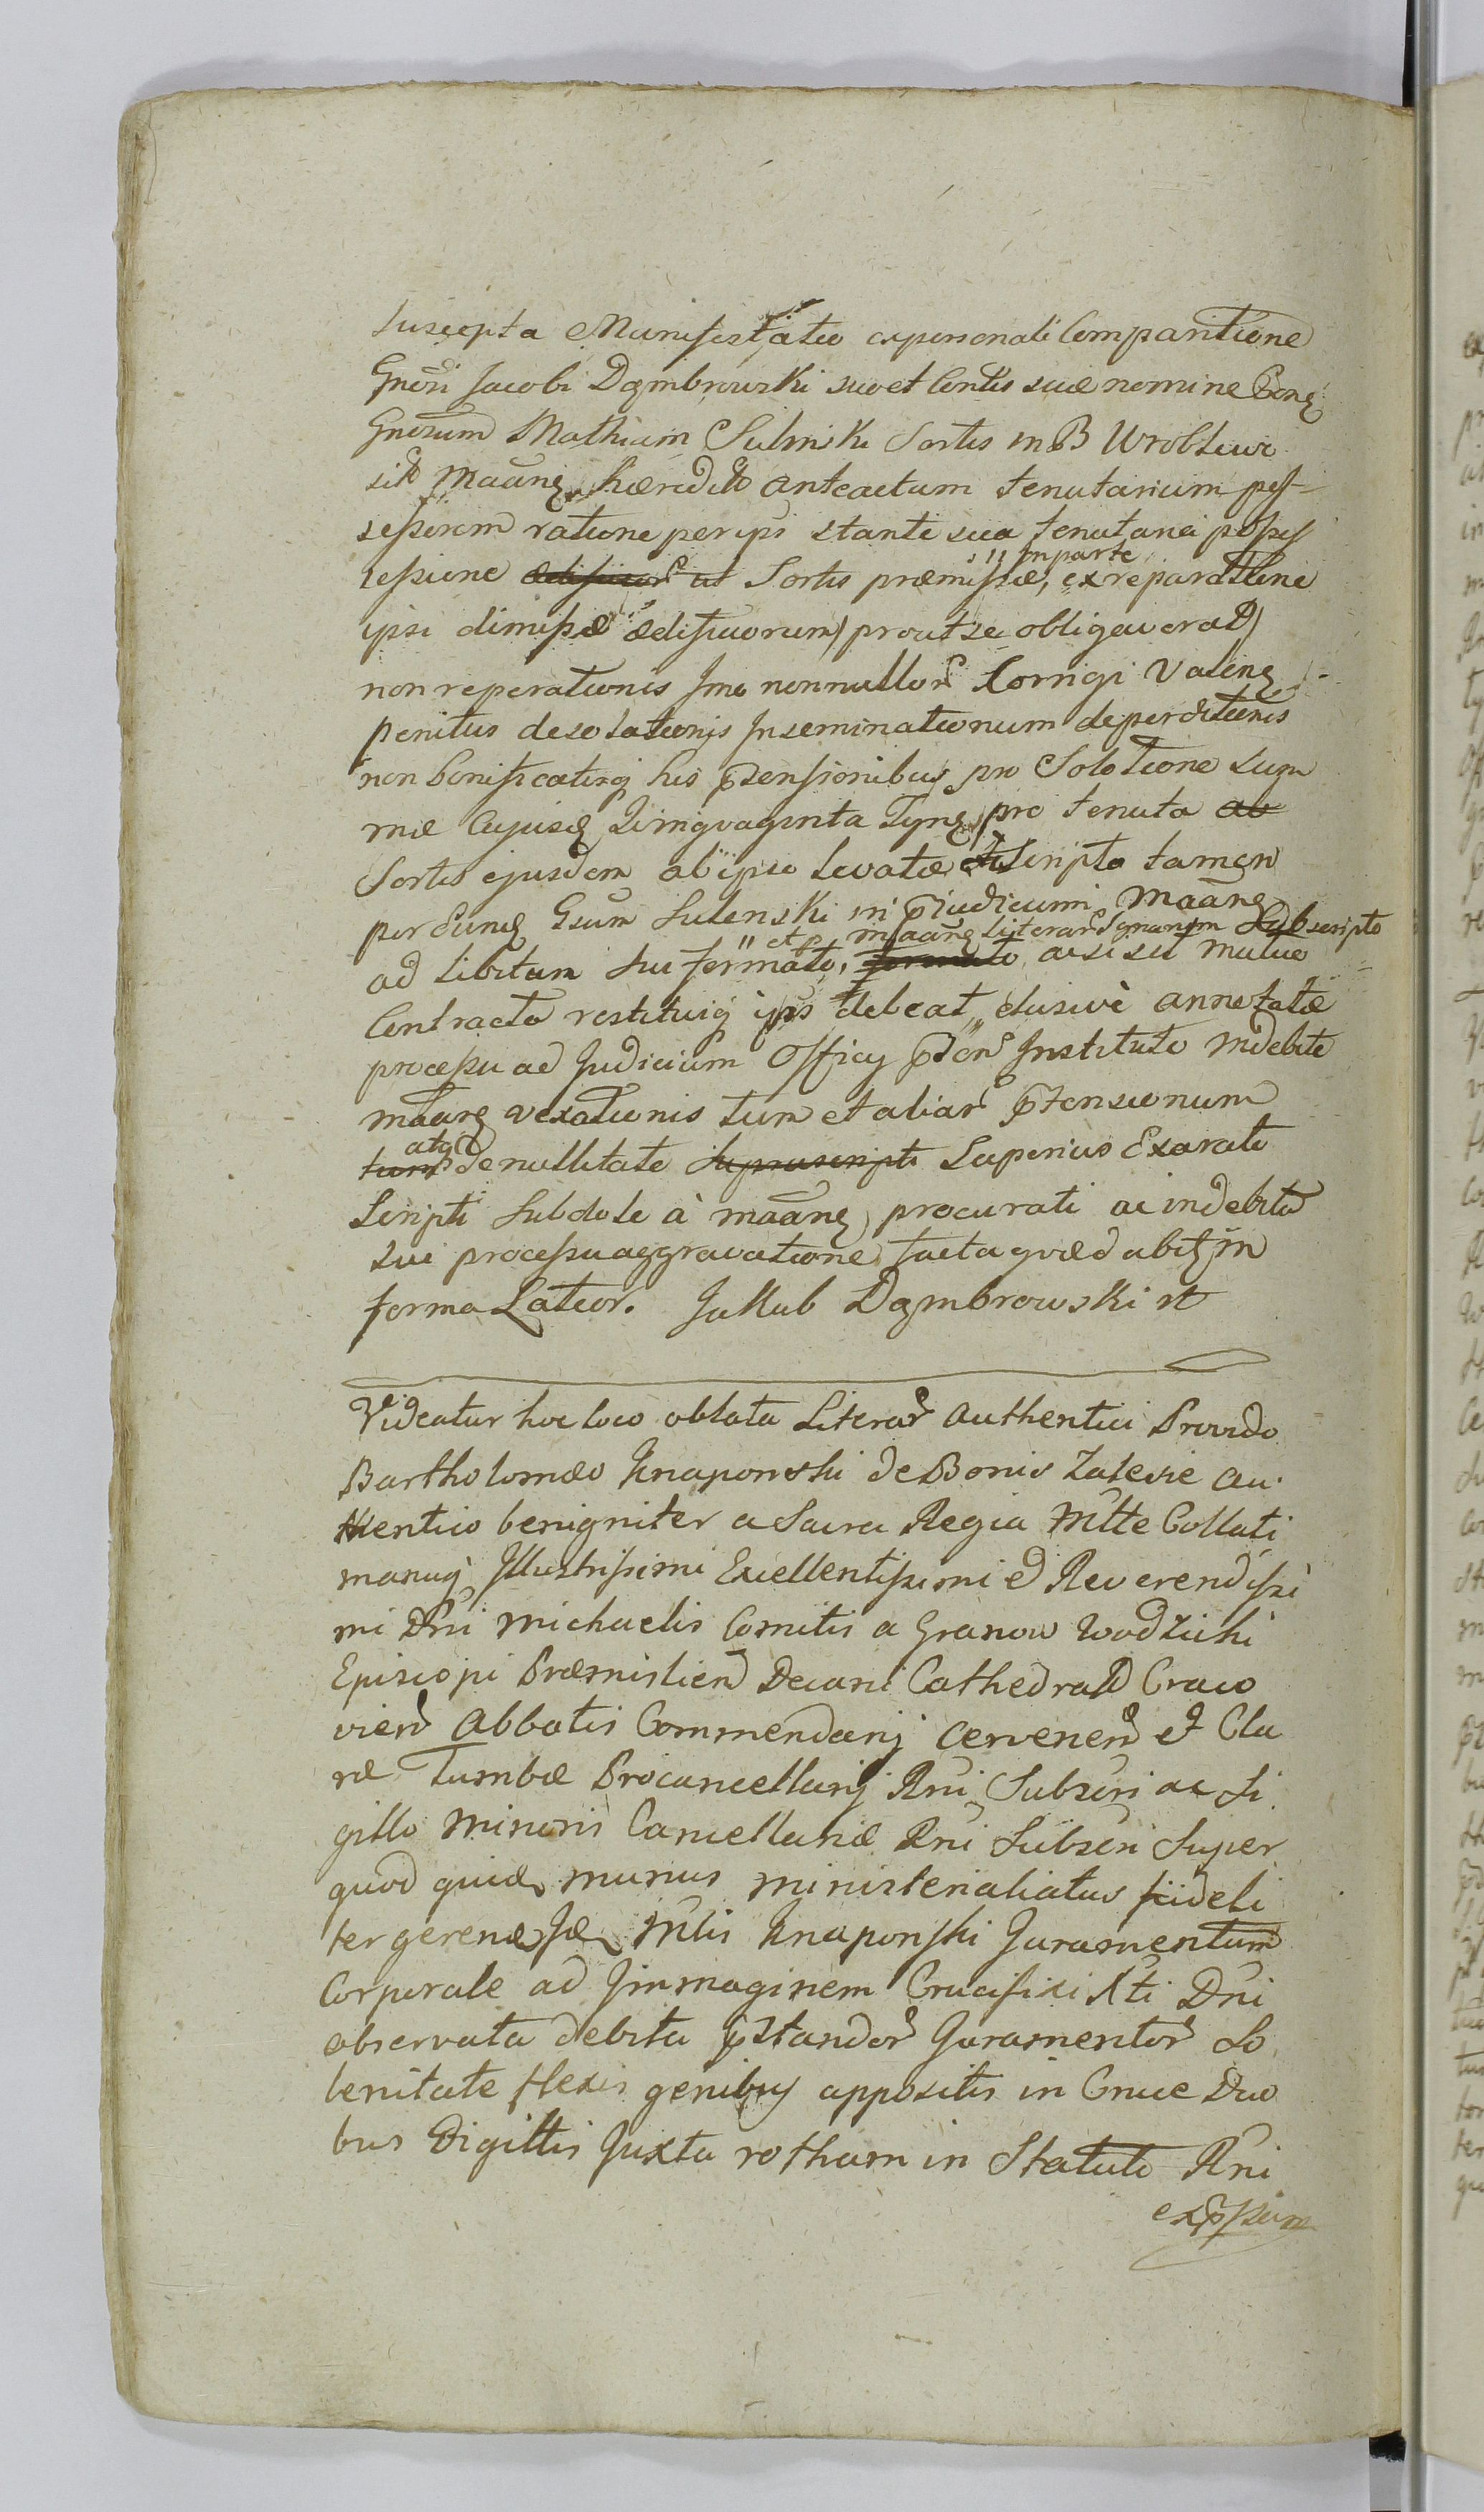 Suscepta Manifestatio a personali Comparitione
Gnõsi Jacobi Dąmbrowski suo et Contis suæ nomine Cong
Gnosum Mathiam Sulinski Sortis in B Wroblewi
sitt Maãng hæredett anteactum tenutarium pos-
sessorem ratione per ipsi stante sua tenutaria posses
sessione ædificiorr ut Sortis præmissæ, in parte ex reparatione
ipsi dimissæ ædificiorum, prout se obligaverat
non reperationis Imo nonnullorr Corrigi Valeng
penitus desolationis Inseminationum deperditionis
non bonificatiq his prtensionibus pro Solutione Sum
mæ Cujusq Qinqvaginta Tyng pro tenuta ab
Sortis ejusdem ab ipso levatæ Scripto tamen
per Eung Gsum Sulenski in prjudicium Maãng
et p maãng Literarr Ignarum Subscripto
ad libitum sui formato, formato ac si sit mutuo
Contracto restituiq ipsi debeat elusivè annotatæ
processu ad Judicium Officy prtenr Instituto indebite
mãang vexationis tum et aliarr prtensionum
tum atq de nullitate Suprascripti Superius Exarati
Scripti Subdole à maãng procurati ac indebita
sui processu aggravatione facta qvæd abitt in
forma Latior. Jakub Dąmbrowski m
Videatur hoc loco oblata Literarr Authentici Provido
Bartholomæo Knaponski de Bonis Zalesie au-
thentico benigniter a Sacra Regia Mtte Collati
manuq Illustrissimi Excellentissimi et Reverendissi
mi Dni Michaelis Comitis a Granow Wodzicki
Episcopi Præmislien Decani Cathedral Craco
vien Abbatis Commendarij Cervenen et Cla
ræ Tumbæ Procancellarij Rni Subscri ac Si
gillo Minoris Cancellariæ Rni Subscri Super
quod quidem munus ministerialiatus fideli
ter gerend Id Mlis Knaponski Juramentum
Corporale ad Jmmaginem Crucifixi Xti Dni
observata debita prstandorr Juramentorr So
lenitate flexis genibus appositis in Cruce Duo
bus Digittis Juxta rotham in Statuto Rni
exprssam